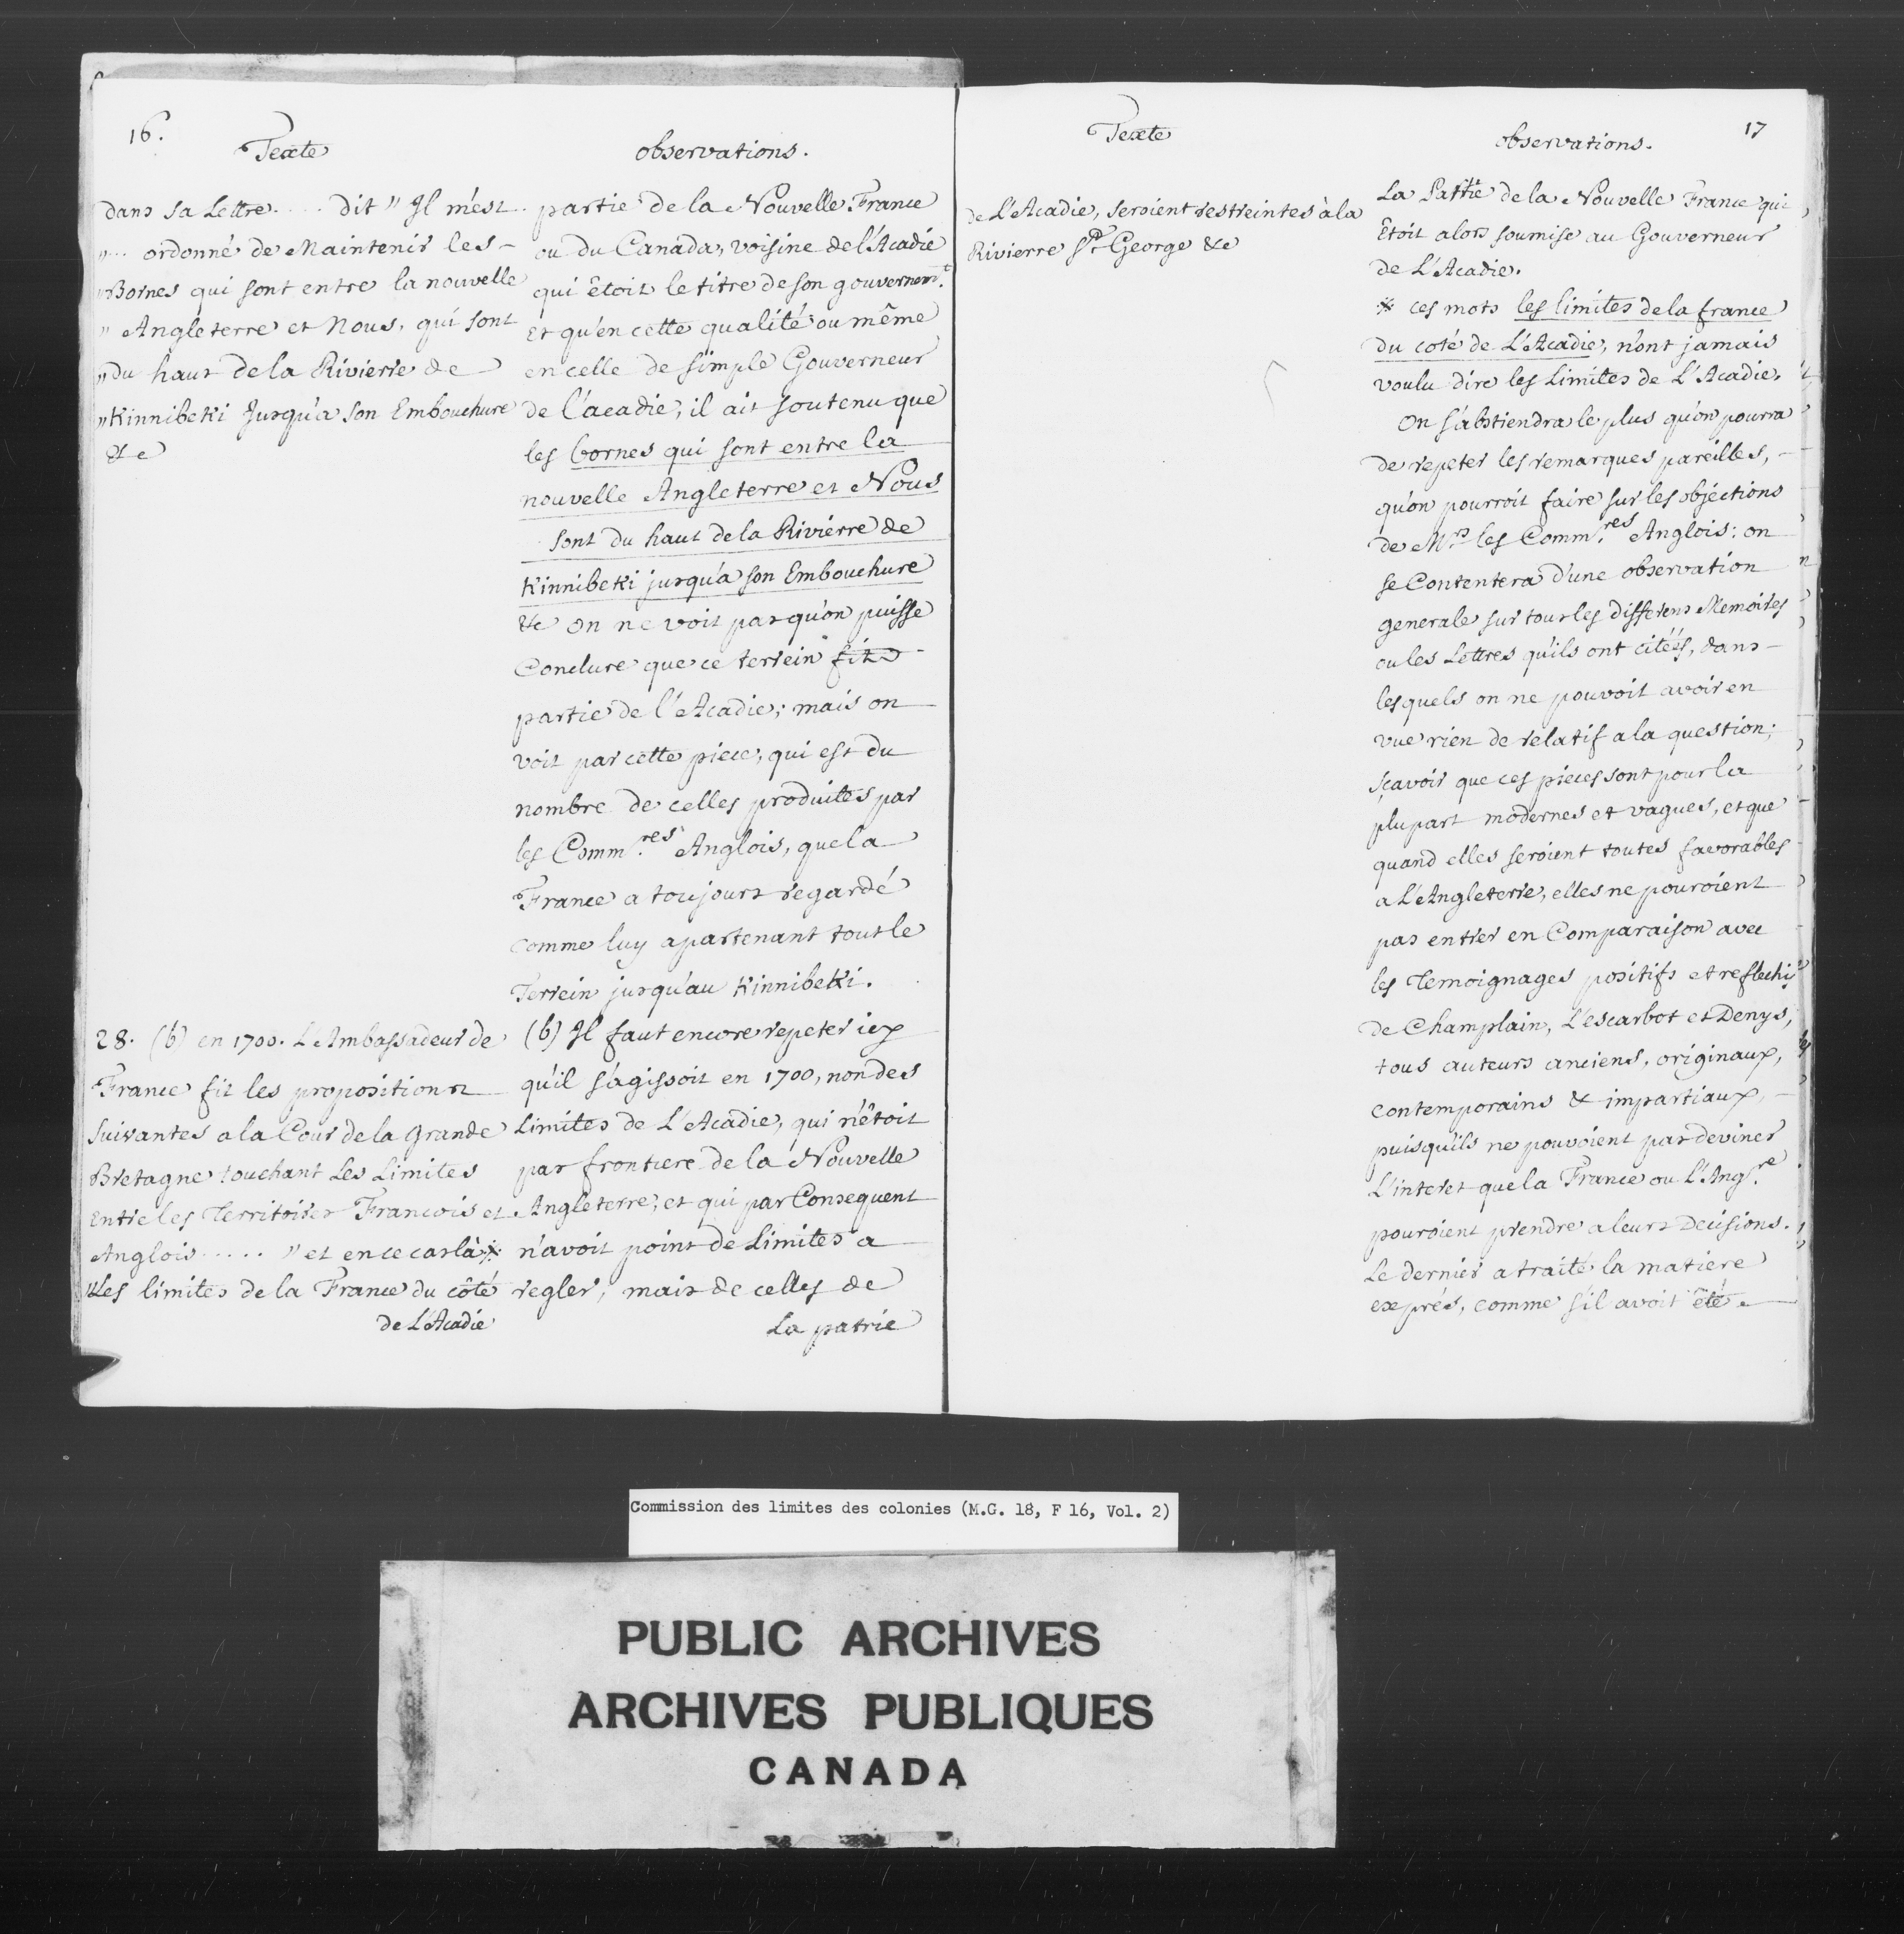 16.
Texte
dans sa Lettre.... dit " Il m'est
"... ordonné de Maintenir les-
"Bornes qui sont entre la nouvelle
" Angleterre et Nous, qui sont
"Du haut de la Rivierre de
"Kinnibeki Jusqu'a son Embouchure
&c
28. (b) en 1700. L'Ambassadeur de
France fit les propositions
suivantes a la Cour de la Grande
Bretagne touchant Les Limites
Entre les Territoires Francois et
Anglois..... " et en ce cas là *
"Les limites de la France du côté
de L'Acadie
observations.
partie de la Nouvelle France
ou du Canada, voisine de l'Acadie
qui êtoit le titre de son gouvernem.t
Et qu'en cette qualité ou même
en celle de simple Gouverneur
de l'acadie, il ait soutenu que
les bornes qui sont entre la
nouvelle Angleterre et Nous
sont du haut de la Rivierre de
Kinnibeki jusqu'a son Embouchure
&c on ne voit pas qu'on puisse
Conclure que ce terrein fit
partie de l'Acadie; mais on
voit par cette piece, qui est du
nombre de celles produites par
les Comm.res Anglois, que la
France a toujours regardé
comme luy apartenant tout le
Terrein jusqu'au Kinnibeki.
(b) Il faut encore repeter icy
qu'il s'agissoit en 1700, non des
Limites de L'Acadie, qui n'êtoit
pas frontiere de la Nouvelle
Angleterre, et qui par Consequent
n'avoit point de Limites a
regler, mais de celles de
La patrie
Texte
de L'Acadie, seroient restreintes à la
Rivierre St George &c
17
observations.
La Partie de la Nouvelle France qui
Etoit alors soumise au Gouverneur
de L'Acadie.
* ces mots les limites de la france
du coté de L'Acadie, n'ont jamais
voulu dire les Limites de L'Acadie.
On s'abstiendra le plus qu'on pourra
de repeter les remarques pareilles, -
qu'on pourroit faire sur les objections
de Mrs les Comm.res Anglois: on
se Contentera d'une observation
generale sur tous les differens Memoires
ou les Lettres qu'ils ont citées, dans -
lesquels on ne pouvoit avoir en
vue rien de relatif a la question;
sçavoir que ces pieces sont pour la
plupart modernes et vagues, et que
quand elles seroient toutes favorables
a L'Angleterre, elles ne pouroient
pas entrer en Comparaison avec
les Temoignages positifs et reflechis
de Champlain, L'escarbot et Denys,
tous auteurs anciens, originaux,
contemporains & impartiaux, -
puisqu'ils ne pouvoient pas deviner
L'interet que la France ou L'Ang.re
pouroient prendre a leurs Decisions.
Le dernier a traité la matiere
exprès, comme s'il avoit êté
Commission des limites des colonies (M.G. 18, F 16, Vol. 2)
PUBLIC ARCHIVES
ARCHIVES PUBLIQUES
CANADA